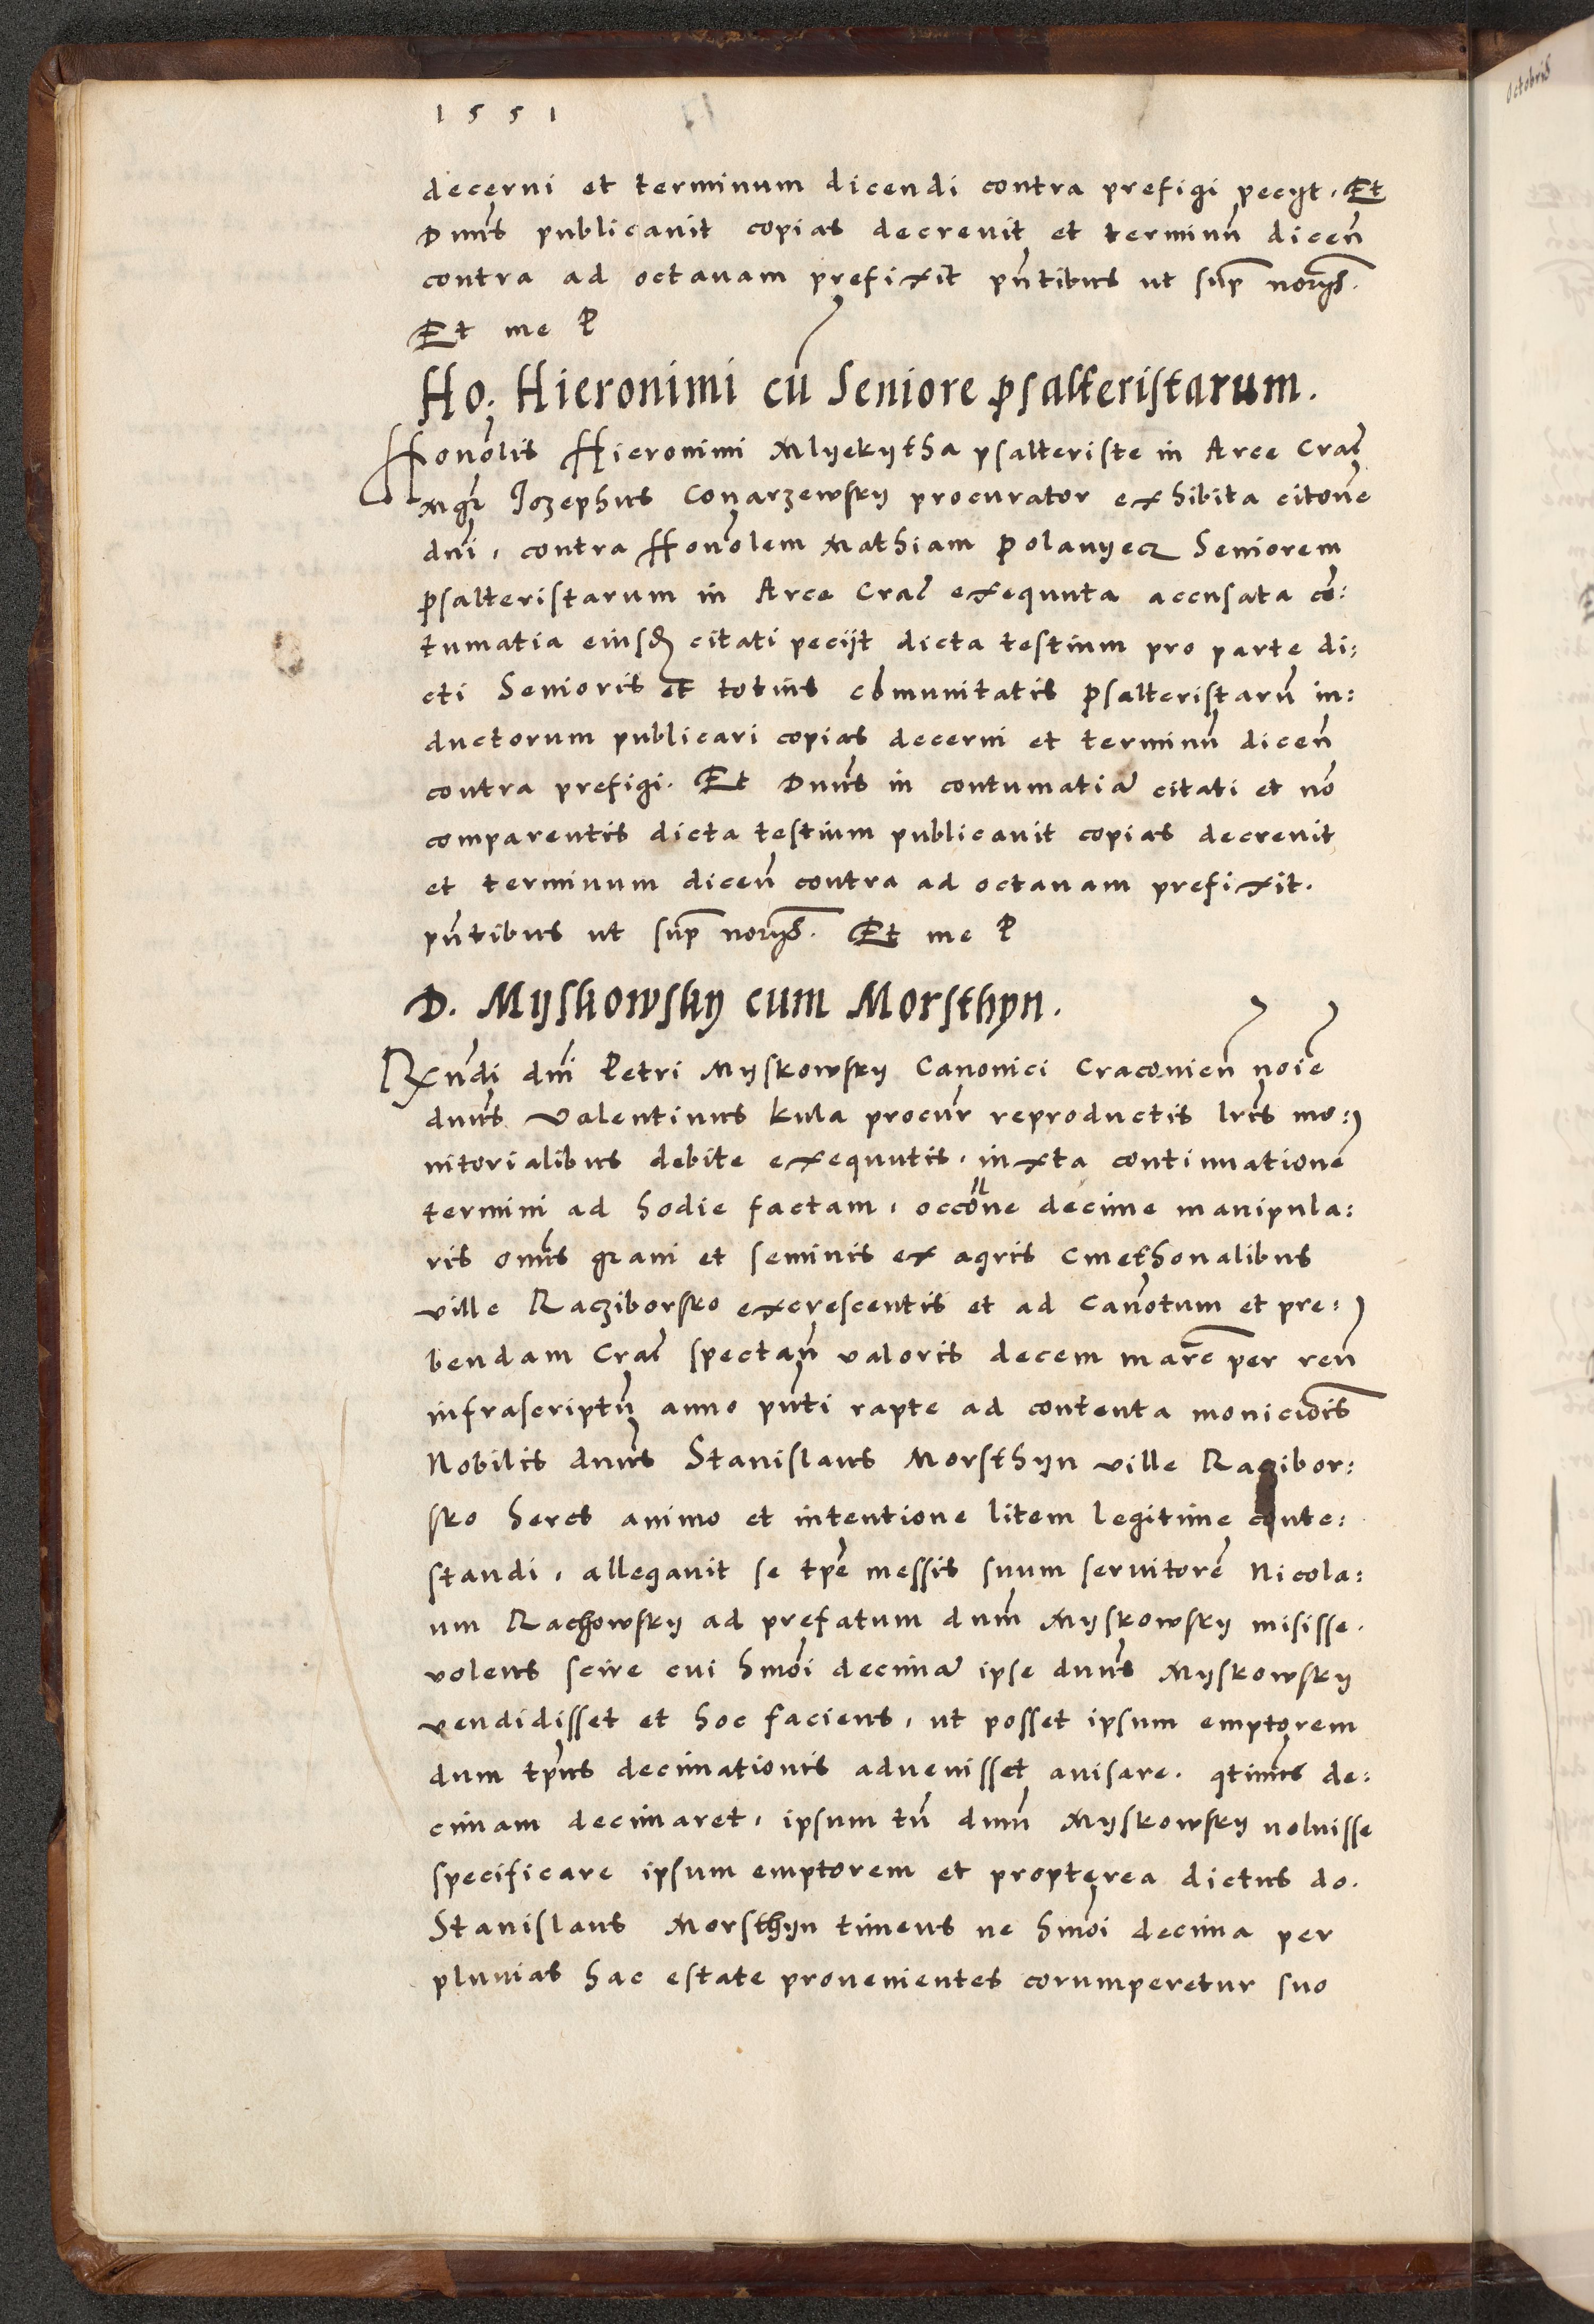 1551
decerni et terminum dicendi contra prefigi pecijt. Et
Dnus publicavit copias decrevit et terminũ diceñ
contra ad octavam prefixit pñtibus ut sup norijs.
Et me P
Ho. Hieronimi cũ Seniore psalteristarum.
Honolis Hieronimi Mlyekytha psalteriste in Arce Crac
Mgr Jozephus Conarzewsky procurator exhibita citone
dni, contra Honolem Mathiam Polanyecz Seniorem
psalteristarum in Arce Crac exequuta accusata cõ:
tumatia eiusd citati pecijt dicta testium pro parte di:
cti Senioris et totius cõmunitatis psalteristarũ in:
ductorum publicari copias decerni et terminũ diceñ
contra prefigi. Et Dnus in contumatiã citati et nõ
comparentis dicta testium publicavit copias decrevit
et terminum diceñ contra ad octavam prefixit.
pñtibus ut sup norijs. Et me P
D. Myskowsky cum Morsthyn.
Rxndi dni Petri Myskowsky Canonici Cracovieñ noie
dnus Valentinus kula procur reproductis lris mo:
nitorialibus debite exequutis, iuxta continuationẽ
termini ad hodie factam, occõne decime manipula:
ris omis grani et seminis ex agris Cmethonalibus
ville Racziborsko excrescentis et ad Canotum et pre:
bendam Crac spectañ valoris decem marc per reñ
infrascriptũ anno pnti rapte ad contenta monicois
Nobilis dnus Stanislaus Morsthyn ville Raczibor:
sko heres animo et intentione litem legitime conte:
standi, allegavit se tpe messis suum servitorẽ Nicola:
um Rachowsky ad prefatum dnum Myskowsky misisse.
volens scire cui hmoi decimã ipse dnus Myskowsky
vendidisset et hoc faciens, ut posset ipsum emptorem
dum tpus decimationis advenisset avisare. qtinus de:
cimam decimaret, ipsum tñ dnum Myskowsky noluisse
specificare ipsum emptorem et propterea dictus do.
Stanislaus Morsthyn timens ne hmoi decima per
pluvias hac estate provenientes corumperetur suo
Octobris